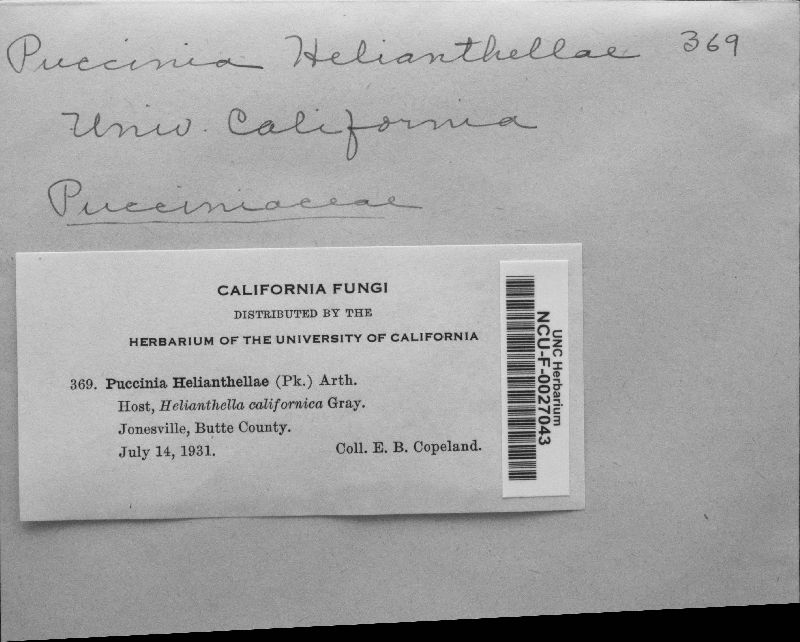 Puccinia Helianthellae 369
Univ. California
Pucciniaceae
CALIFORNIA FUNGI
DISTRIBUTED BY THE
HERBARIUM OF THE UNIVERSITY OF CALIFORNIA
369. Puccinia Helianthellae (Pk.) Arth.
Host, Helianthella californica Gray.
Jonesville, Butte County.
July 14, 1931. Coll. E. B. Copeland.
UNC Herbarium
NCU-F-0027043